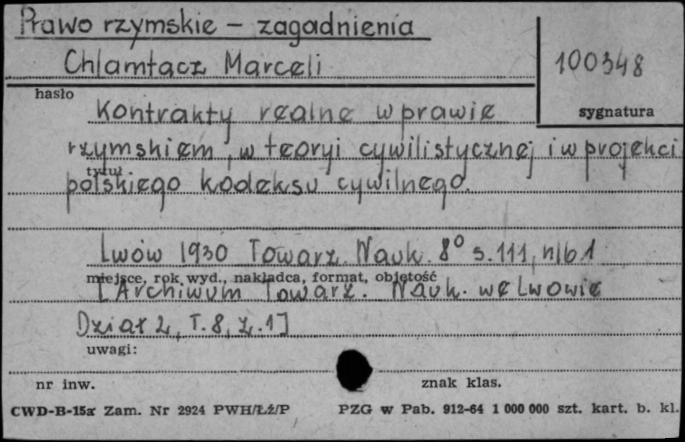 Prawo rzymskie - zagadnienia
Chlamtacz Marceli
100348
hasło
sygnatura
Kontrakty realne w prawie
rzymskiem, w teoryi cywilistycznej i w projekci
tytuł
polskiego kodeksu cywilnego.
Lwów 1930 Towarz. Nauk. 8° s. 111, nlb 1
miejsce, rok wyd., nakładca, format, objętość
[Archiwum Towarz. Nauk. we Lwowie
Dział 2, T. 8, z. 1]
uwagi:
nr inw.
znak klas.
CWD-B-15a Zam. Nr 2924 PWH/Łź/P PZG w Pab. 912-64 1 000 000 szt. kart. b. kl.